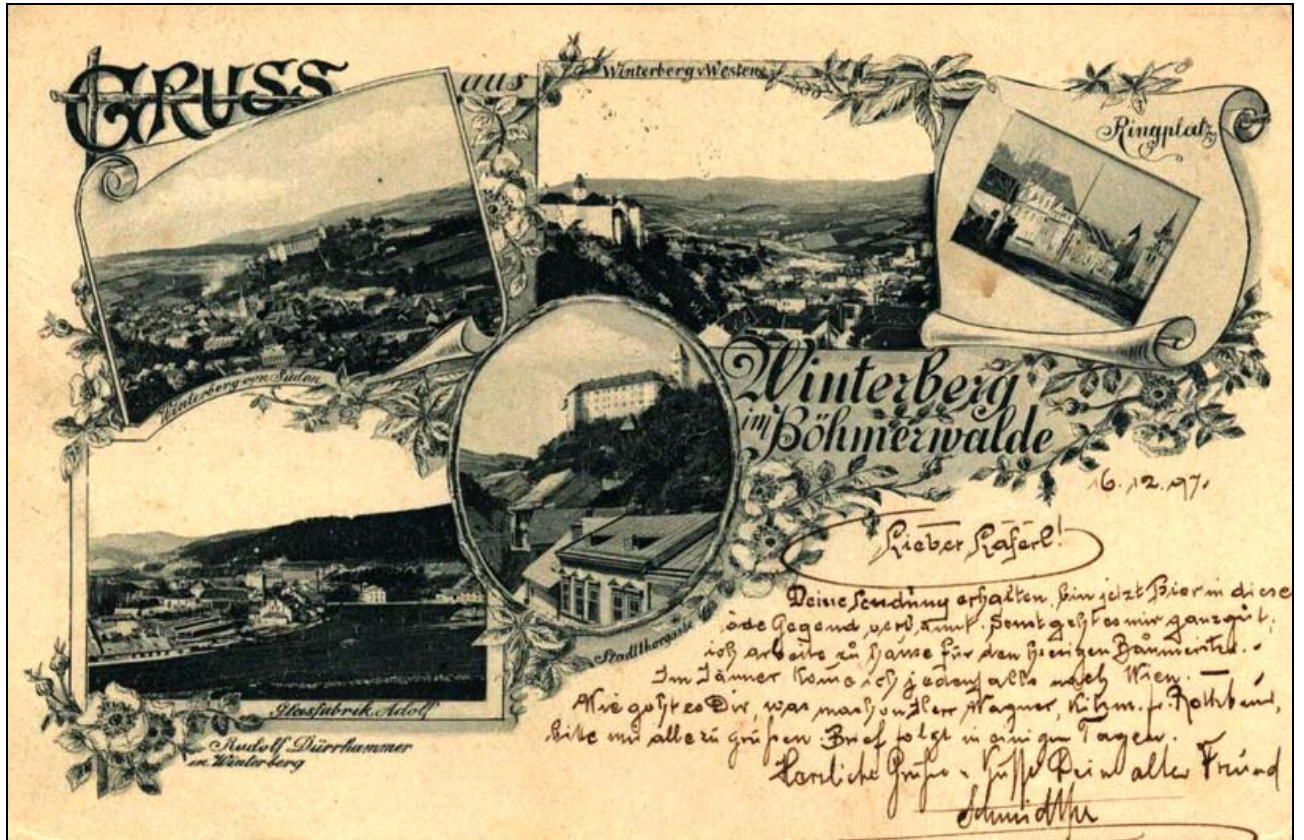 GRUSS
aus
Winterberg v. Westen
Ringplatz
Winterberg von Süden
Winterberg
im Böhmerwalde
Stadtthorgasse
Glasfabrik Adolf
Rudolf Dürrhammer
in Winterberg
16.12.97.
Lieber Käferl!
Deine Sendung erhalten, bin jetzt hier in diese
öde Gegend verbannt. Sonst geht es mir ganz gut,
ich arbeite zu Hause für den hiesigen
Im Jänner kome ich jedenfalls nach Wien.
Wie geht es Dir, was machen Herr Wagner,
bitte mir alle zu grüßen. Brief folgt in einigen Tagen.
Herzliche Grüße Dein alter Freund